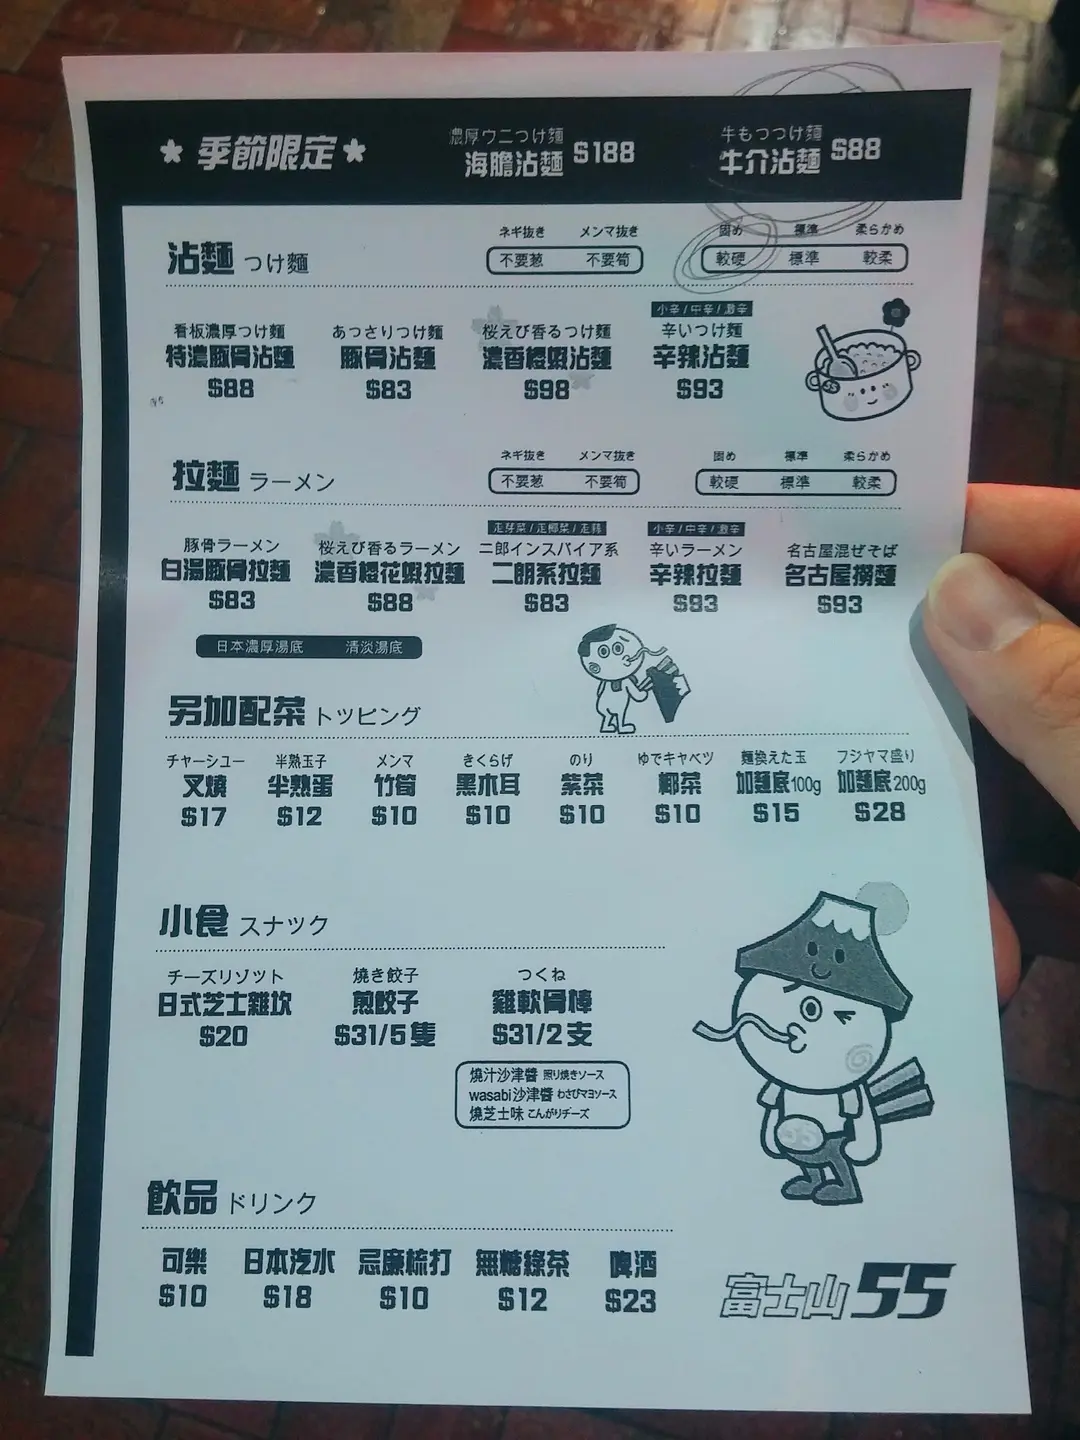 ★ 季節限定 ★
濃厚ウニつけ麵
海膽沾麵 $188
牛もつつけ麵
牛介沾麵 $88
沾麵 つけ麵
ネギ抜き メンマ抜き
不要葱 不要筍
固め 標準 柔らかめ
較硬 標準 較柔
看板濃厚つけ麵
特濃豚骨沾麵
$88
あっさりつけ麵
豚骨沾麵
$83
桜えび香るつけ麵
濃香櫻蝦沾麵
$98
小辛/中辛/激辛
辛いつけ麵
辛辣沾麵
$93
拉麵 ラーメン
ネギ抜き メンマ抜き
不要葱 不要筍
固め 標準 柔らかめ
較硬 標準 較柔
豚骨ラーメン
白湯豚骨拉麵
$83
桜えび香るラーメン
濃香櫻花蝦拉麵
$88
走芽菜/走椰菜/走豬
二郎インスパイア系
二朗系拉麵
$83
小辛/中辛/激辛
辛いラーメン
辛辣拉麵
$93
名古屋混ぜそば
名古屋撈麵
$93
日本濃厚湯底 清淡湯底
另加配菜 トッピング
チャーシュー
叉燒
$17
半熟玉子
半熟蛋
$12
メンマ
竹筍
$10
きくらげ
黑木耳
$10
のり
紫菜
$10
ゆでキャベツ
椰菜
$10
麵換えた玉
加麵底100g
$15
フジヤマ盛り
加麵底200g
$28
小食 スナック
チーズリゾット
日式芝士雜炊
$20
燒き餃子
煎餃子
$31/5隻
つくね
雞軟骨棒
$31/2支
燒汁沙津醬 照り燒きソース
wasabi沙津醬 わさびマヨソース
燒芝士味 こんがりチーズ
55
飲品 ドリンク
可樂
$10
日本汽水
$18
忌廉梳打
$10
無糖綠茶
$12
啤酒
$23
富士山55